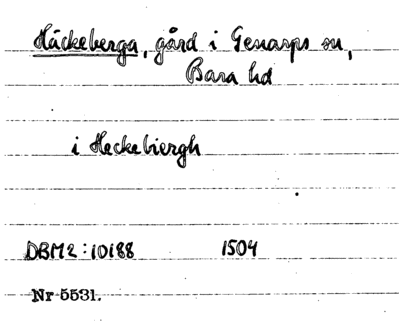 Häckeberga, gård i Genarps sn,
Bara hd
i Heckebiergh
DBM2:10188 1504
Nr 5531.